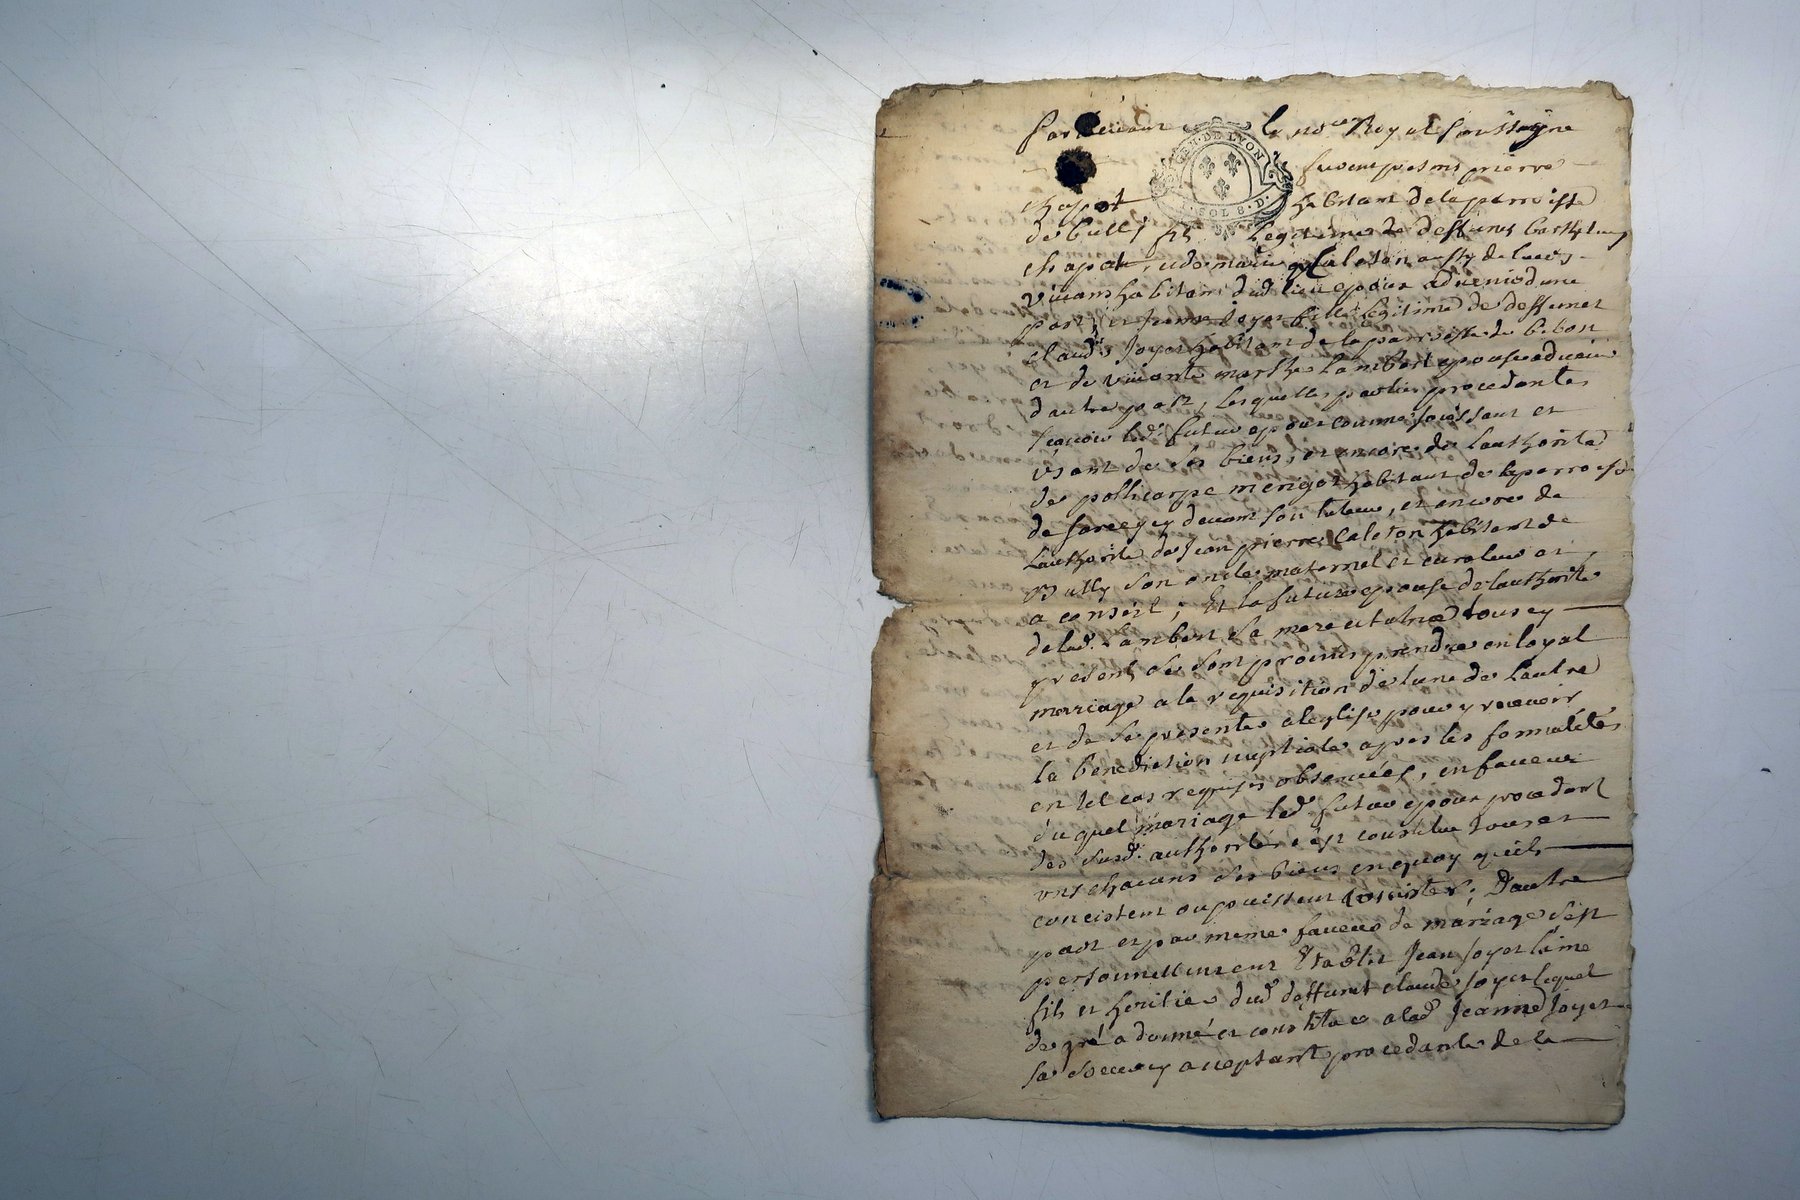 Pardevant le no.re Royal soussigne
GEN. DE LYON
SOLS. D.
furent presens pierre
chapot habitant de la parroisse
de bully fils legitime de deffunct barthelemy
chapot, et de marie Caleton
vivans habitant dud. lieu epoux advenir d'une
part, et Jeanne Joyet fille legitime de deffunct
claude Joyet habitant de la parroisse de
et de vivante marthe Lambert epouse advenir
d'autre part, lesquelles parties procedantes
scavoir led. futur epoux comme jouissant et
usant de ses biens, et encore de Lauthorité
de pollicarpe merigot habitant de la parroisse
de devant son tuteur, et encore de
Lauthorité de Jean pierre Caleton habitant de
Bully son oncle maternel et curateur
a conseil ; Et la future epouse de lauthorité
de lad. Lambert sa mere et tutrice tous cy
present, se sont promis prendre en loyal
mariage a la requisition de lune de lautre
et de se presenter a leglise pour y recevoir
la benediction nuptiale apres les formalités
en tel cas requises observées, en faveur
du quel mariage led. futur epoux procedant
des susd. authorités s'est constitué tous et
uns chacuns ses biens en quoy quils
concistent ou puissent concister ; D'autre
part et par meme faveur de mariage s'est
personnellement Etablit Jean Joyet laine
fils et heritier dud. deffunct claude Joyet lequel
de gré a donné et constitue a lad. Jeanne Joyet
sa soeur cy acceptant procedante de la